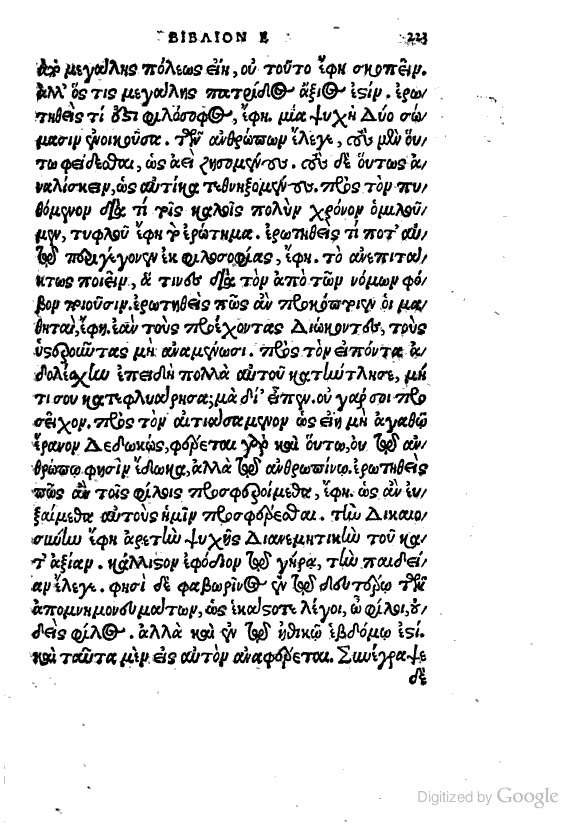 ΒΙΒΛΙΟΝ Ε 223
ἀπὸ μεγάλης πόλεως εἴη, οὐ τοῦτο ἔφη σκοπεῖν.
ἀλλ' ὅς τις μεγάλης πατρίδος ἄξιός ἐστίν. ἐρω-
τηθεὶς τί ὅτι φιλόσοφος, ἔφη. μία ψυχὴ δύο σώ-
μασιν ἐνοικοῦσα. τῶν ἀνθρώπων ἔλεγε, τοὺς μὲν οὕ-
τω φείδεσθαι, ὡς ἀεὶ ζησομένους. τοὺς δὲ οὕτως ἀ-
ναλίσκειν, ὡς αὐτίκα τεθνηξομένους. πρὸς τὸν πυ-
θόμενον διὰ τί τοῖς καλοῖς πολὺν χρόνον ὁμιλοῦ-
μεν, τυφλοῦ ἔφη τὸ ἐρώτημα. ἐρωτηθεὶς τί ποτ' αὐ-
τῷ περιγέγονεν ἐκ φιλοσοφίας, ἔφη. τὸ ἀνεπιτάκ-
κτως ποιεῖν, ἅ τινες διὰ τὸν ἀπὸ τῶν νόμων φό-
βον ποιοῦσιν. ἐρωτηθεὶς πῶς ἂν προκόπτοιεν οἱ μα-
θηταὶ, ἔφη. ἐὰν τοὺς προέχοντας διώκοντες, τοὺς
ὑστεροῦντας μὴ ἀναμένωσι. πρὸς τὸν εἰπόντα ἀ-
δολέσχην ἐπειδὴ πολλὰ αὐτοῦ κατήντλησε, μή
τι σου κατεφλυάρησα; μὰ δί' εἶπεν. οὐ γάρ σοι προ
σεῖχον. πρὸς τὸν αἰτιασάμενον ὡς εἴη μὴ ἀγαθῷ
ἔρανον δεδωκώς, φέρεται γὰρ καὶ οὕτω, οὐ τῷ ἀν-
θρώπῳ φησὶν ἔδωκα, ἀλλὰ τῷ ἀνθρωπίνῳ. ἐρωτηθεὶς
πῶς ἂν τοῖς φίλοις προσφεροίμεθα, ἔφη. ὡς ἂν εὐ-
ξαίμεθα αὐτοὺς ἡμῖν προσφέρεσθαι. τὴν δικαιο-
σύνην ἔφη ἀρετὴν ψυχῆς διανεμητικὴν τοῦ κα-
τ' ἀξίαν. κάλλιστον ἐφόδιον τῷ γήρᾳ, τὴν παιδεί-
αν ἔλεγε. φησὶ δὲ φαβωρῖνος ἐν τῷ δευτέρῳ τῶν
ἀπομνημονευμάτων, ὡς ἑκάστοτε λέγοι, ὦ φίλοι, οὐ-
δεὶς φίλος. ἀλλὰ καὶ ἐν τῷ ἠθικῷ ἑβδόμῳ ἐστί.
καὶ ταῦτα μὲν εἰς αὐτὸν ἀναφέρεται. Συνέγραψε
δὲ
Digitized by Google